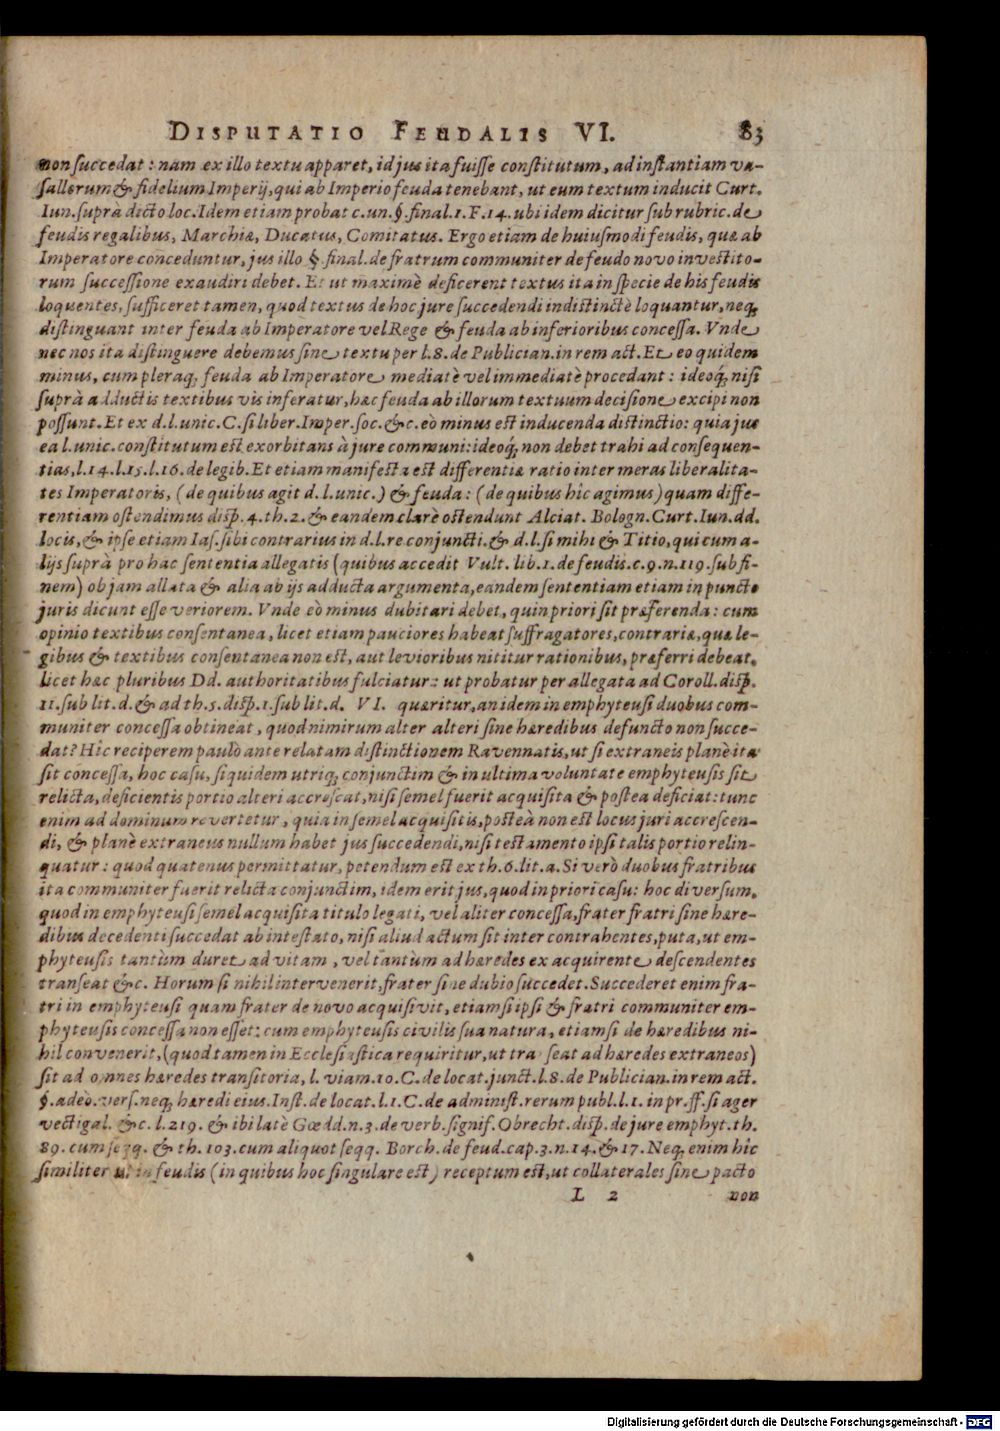 DISPUTATIO FEUDALIS VI. 83
non succedat: nam ex illo textu apparet, id jus ita fuisse constitutum, ad instantiam va-
sallorum & fidelium Imperij, qui ab Imperio feuda tenebant, ut eum textum inducit Curt.
Iun. suprà dicto loc. Idem etiam probat c. un. §. final. 1. F. 14. ubi idem dicitur sub rubric. de
feudis regalibus, Marchiæ, Ducatus, Comitatus. Ergo etiam de huiusmodi feudis, quæ ab
Imperatore conceduntur, jus illo §. final. de fratrum communiter de feudo novo investito-
rum successione exaudiri debet. Et ut maximè deficerent textus ita in specie de his feudis
loquentes, sufficeret tamen, quod textus de hoc jure succedendi indistinctè loquantur, neq́;
distinguant inter feuda ab Imperatore vel Rege & feuda ab inferioribus concessa. Vnde
nec nos ita distinguere debemus sine textu per l. 8. de Publician. in rem act. Et eo quidem
minus, cum pleraq́; feuda ab Imperatore mediatè vel immediatè procedant: ideoq́; nisi
suprà adductis textibus vis inferatur, hæc feuda ab illorum textuum decisione excipi non
possunt. Et ex d. l. unic. C. si liber. Imper. soc. &c. eò minus est inducenda distinctio: quia jus
ea l. unic. constitutum est exorbitans à jure communi: ideoq́; non debet trahi ad consequen-
tias, l. 14. l. 15. l. 16. de legib. Et etiam manifesta est differentiæ ratio inter meras liberalita-
tes Imperatoris, (de quibus agit d. l. unic.) & feuda: (de quibus hîc agimus) quam diffe-
rentiam ostendimus disp. 4. th. 2. & eandem clarè ostendunt Alciat. Bologn. Curt. Iun. dd.
locis, & ipse etiam Ias. sibi contrarius in d. l. re conjuncti. & d. l. si mihi & Titio, qui cum a-
lijs suprà pro hac sententia allegatis (quibus accedit Vult. lib. 1. de feudis. c. 9. n. 119. sub fi-
nem) ob jam allata & alia ab ijs adducta argumenta, eandem sententiam etiam in puncto
juris dicunt esse veriorem. Vnde eò minus dubitari debet, quin priori sit præferenda: cum
opinio textibus consentanea, licet etiam pauciores habeat suffragatores, contrariæ, quæ le-
gibus & textibus consentanea non est, aut levioribus nititur rationibus, præferri debeat,
licet hæc pluribus Dd. authoritatibus fulciatur: ut probatur per allegata ad Coroll. disp.
11. sub lit. d. & ad th. 5. disp. 1. sub lit. d. VI. quæritur, an idem in emphyteusi duobus com-
muniter concessa obtineat, quod nimirum alter alteri sine hæredibus defuncto non succe-
dat? Hîc reciperem paulò ante relatam distinctionem Ravennatis, ut si extraneis planè ita
sit concessa, hoc casu, siquidem utriq́; conjunctim & in ultima voluntate emphyteusis sit
relicta, deficientis portio alteri accrescat, nisi semel fuerit acquisita & postea deficiat: tunc
enim ad dominum revertetur, quia in semel acquisitis, posteà non est locus juri accrescen-
di, & planè extraneus nullum habet jus succedendi, nisi testamento ipsi talis portio relin-
quatur: quod quatenus permittatur, petendum est ex th. 6. lit. a. Si verò duobus fratribus
ita communiter fuerit relicta conjunctim, idem erit jus, quod in priori casu: hoc diversum,
quod in emphyteusi semel acquisita titulo legati, vel aliter concessa, frater fratri sine hære-
dibus decedenti succedat ab intestato, nisi aliud actum sit inter contrahentes, puta, ut em-
phyteusis tantùm duret ad vitam, vel tantùm ad hæredes ex acquirente descendentes
transeat &c. Horum si nihil intervenerit, frater sine dubio succedet. Succederet enim fra-
tri in emphyteusi quam frater de novo acquisivit, etiamsi ipsi & fratri communiter em-
phyteusis concessa non esset: cum emphyteusis civilis sua natura, etiamsi de hæredibus ni-
hil convenerit, (quod tamen in Ecclesiastica requiritur, ut transeat ad hæredes extraneos)
sit ad omnes hæredes transitoria, l. viam. 10. C. de locat. junct. l. 8. de Publician. in rem act.
§. adeò. vers. neq́; hæredi eius. Inst. de locat. l. 1. C. de administ. rerum publ. l. 1. in pr. ff. si ager
vectigal. &c. l. 219. & ibi latè Gœdd. n. 3. de verb. signif. Obrecht. disp. de jure emphyt. th.
89. cum seqq. & th. 103. cum aliquot seqq. Borch. de feud. cap. 3. n. 14. & 17. Neq́; enim hîc
similiter ut in feudis (in quibus hoc singulare est) receptum est, ut collaterales sine pacto
L 2 non
Digitalisierung gefördert durch die Deutsche Forschungsgemeinschaft - DFG